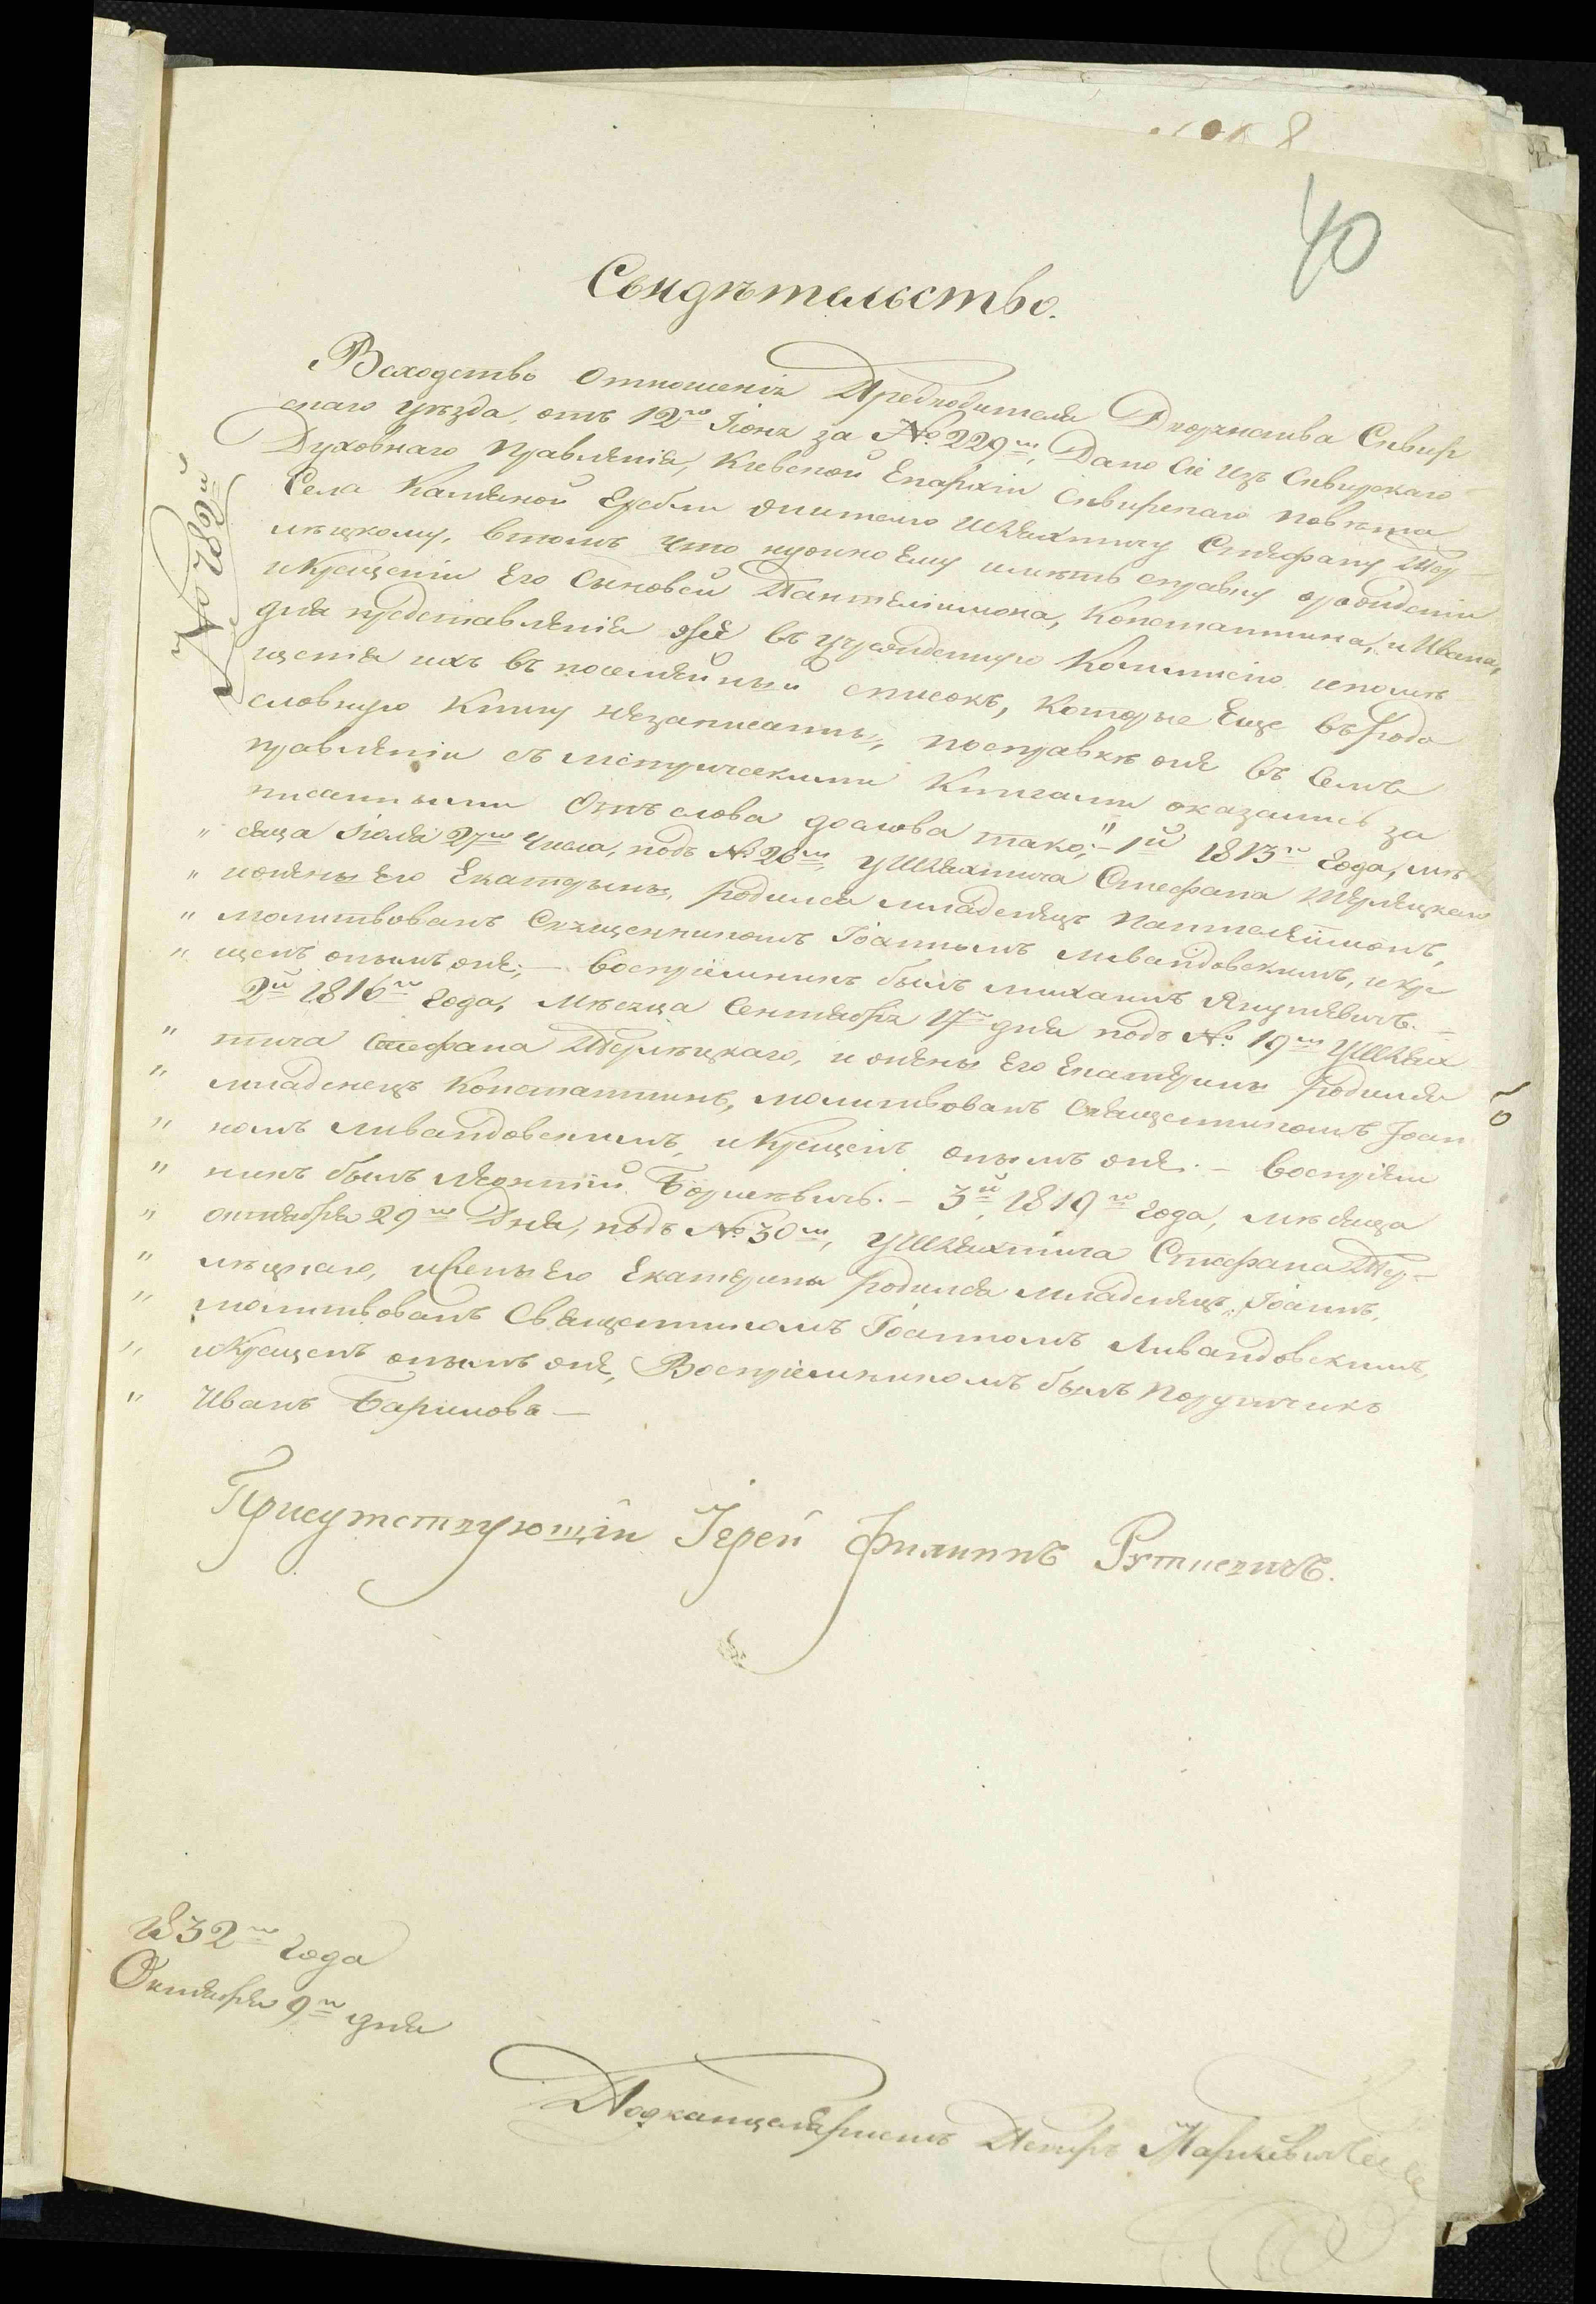 40
Свидѣтельство.
Всходство Отношенія Предводителя Дворянства Сквир
скаго уѣзда, отъ 12го Іюня за №. 229м, Дано Сіе изъ Сквирскаго
Духовнаго Правленія, Кіевской Епархіи Сквирскаго повѣта
Села Каменной Гребли жителю Шляхтичу Стефану Тер
лѣцкому, втомъ что нужно Ему имѣть справку орождении
икрещеніи Его Сыновей Пантелимона, Константина, и Ивана,
для представленія въ учрежденную Коммисію
щенія ихъ въ посемейный списокъ, Которые Еще въ родо
словную Книгу незаписаны, посправкѣ оне въ Семъ
правленіи съ метрическими Книгами оказались за
писанными Отъ слова дослова тако; "1й 1813го Года, мѣ
" сяца Іюля 27го Числа, подъ №. 26м, уШляхтича Стефана Терлецкаго
" ижены Его Екатерины, родился младенецъ Пантелеймонъ,
" молитвованъ Священникомъ Іоанномъ Ливандовскимъ, икре
" щенъ онымъ оне; — воспріемникъ былъ михаилъ Янушевичъ. —
2й 1816го Года, Мѣсяца Сентября 17го дня подъ №. 19м УШлях
" тича Стефана Терлѣцкаго, и жены Его Екатерины родился
" младенецъ Константинъ, молитвованъ Священникомъ Іоан
" номъ Ливандовскимъ, икрещенъ онымъ оне. — воспріем
" никъ былъ . — 3й 1819го Года, мѣсяца
" октября 29го Дня, подъ №. 30м, уШляхтича Стефана Тер—
" лѣцкаго, ижены Его Екатерины родился младенецъ Іоаннъ,
" молитвованъ Священникомъ Іоанномъ Ливандовскимъ,
" икрещенъ онымъ оне, Воспріемникомъ былъ Порутчикъ
" Иванъ Бариновъ —
Присутствующій Іерей Филиппъ
1832го Года
Октября 9го дня
Подканцеляристъ Петръ Маркевичъ